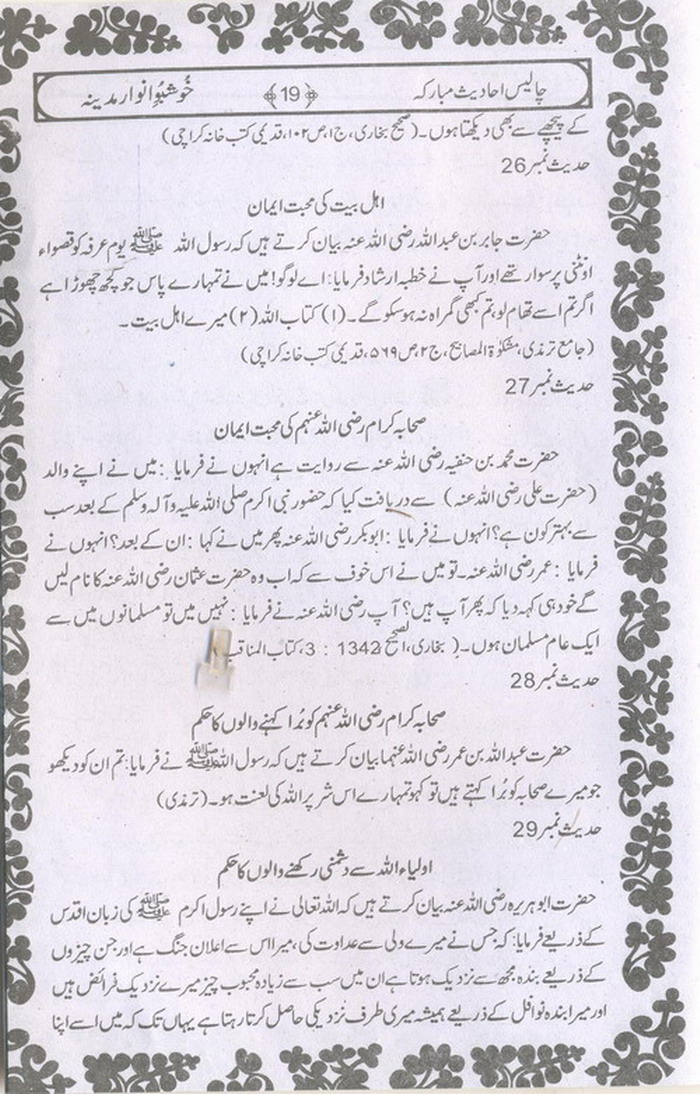 چالیس احادیث مبارکہ ﴿19﴾ خُوشبُوِ انوار مدینہ
کے پیچھے سے بھی دیکھتا ہوں۔ (صحیح بخاری، ج۱، ص۱۰۲، قدیمی کتب خانہ کراچی)
حدیث نمبر 26
اہل بیت کی محبت ایمان
حضرت جابر بن عبداللہ رضی اللہ عنہ بیان کرتے ہیں کہ رسول اللہ ﷺ یوم عرفہ کو قصواء
اونٹنی پر سوار تھے اور آپ نے خطبہ ارشاد فرمایا: اے لوگو! میں نے تمہارے پاس جو کچھ چھوڑا ہے
اگر تم اسے تھام لو، تم کبھی گمراہ نہ ہو سکو گے۔ (۱) کتاب اللہ (۲) میرے اہل بیت۔
(جامع ترمذی، مشکوٰۃ المصابیح، ج۲، ص۵۶۹، قدیمی کتب خانہ کراچی)
حدیث نمبر 27
صحابہ کرام رضی اللہ عنہم کی محبت ایمان
حضرت محمد بن حنفیہ رضی اللہ عنہ سے روایت ہے انہوں نے فرمایا: میں نے اپنے والد
(حضرت علی رضی اللہ عنہ) سے دریافت کیا کہ حضور نبی اکرم صلی اللہ علیہ وآلہ وسلم کے بعد سب
سے بہتر کون ہے؟ انہوں نے فرمایا: ابو بکر رضی اللہ عنہ پھر میں نے کہا: ان کے بعد؟ انہوں نے
فرمایا: عمر رضی اللہ عنہ۔ تو میں نے اس خوف سے کہ اب وہ حضرت عثمان رضی اللہ عنہ کا نام لیں
گے خود ہی کہہ دیا کہ پھر آپ ہیں؟ آپ رضی اللہ عنہ نے فرمایا: نہیں میں تو مسلمانوں میں سے
ایک عام مسلمان ہوں۔ (بخاری، الصحیح 1342 : 3، کتاب المناقب
حدیث نمبر 28
صحابہ کرام رضی اللہ عنہم کو بُرا کہنے والوں کا حکم
حضرت عبداللہ بن عمر رضی اللہ عنہما بیان کرتے ہیں کہ رسول اللہ ﷺ نے فرمایا: تم ان کو دیکھو
جو میرے صحابہ کو بُرا کہتے ہیں تو کہو تمہارے اس شر پر اللہ کی لعنت ہو۔ (ترمذی)
حدیث نمبر 29
اولیاء اللہ سے دشمنی رکھنے والوں کا حکم
حضرت ابو ہریرہ رضی اللہ عنہ بیان کرتے ہیں کہ اللہ تعالیٰ نے اپنے رسول اکرم ﷺ کی زبان اقدس
کے ذریعے فرمایا: کہ جس نے میرے ولی سے عداوت کی، میرا اس سے اعلان جنگ ہے اور جن چیزوں
کے ذریعے بندہ مجھ سے نزدیک ہوتا ہے ان میں سب سے زیادہ محبوب چیز میرے نزدیک فرائض ہیں
اور میرا بندہ نوافل کے ذریعے ہمیشہ میری طرف نزدیکی حاصل کرتا رہتا ہے یہاں تک کہ میں اسے اپنا